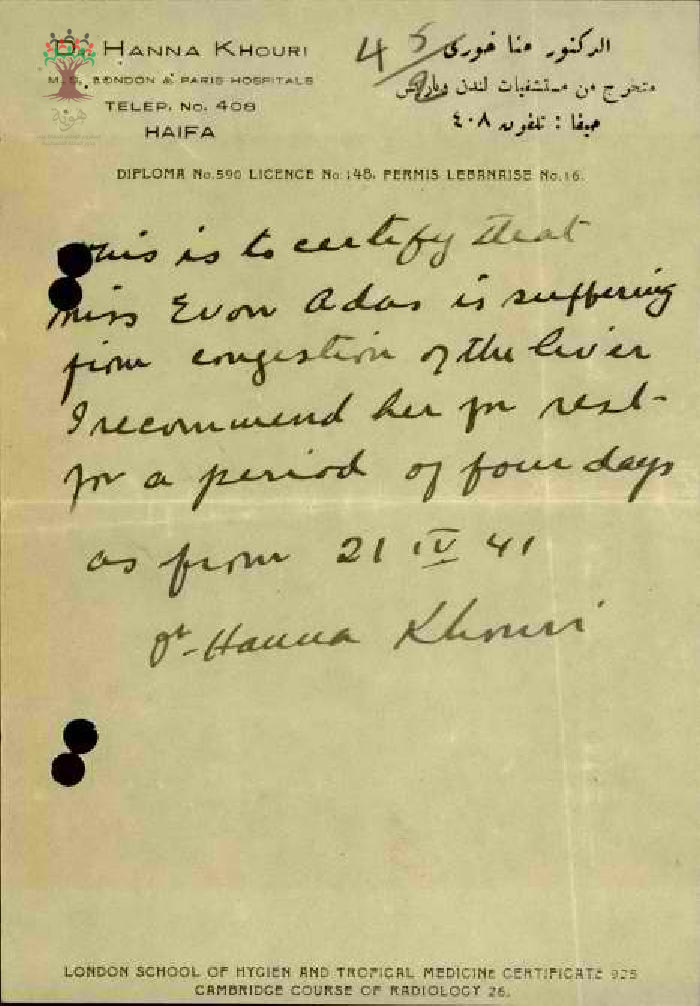 Dr. HANNA KHOURI
M.D. LONDON & PARIS HOSPITALS
TELEP. No. 408
HAIFA
الدكتور حنا خوري
متخرج من مستشفيات لندن وباريس
حيفا : تلفون ٤٠٨
DIPLOMA No.590 LICENCE No.148. PERMIS LEBANAISE No.16.
This is to certify that
miss Evon Adas is suffering
from congestion of the liver
I recommend her for rest
for a period of four days
as from 21 IV 41
Dr. Hanna Khouri
LONDON SCHOOL OF HYGIEN AND TROPICAL MEDICINE CERTIFICATE 925
CAMBRIDGE COURSE OF RADIOLOGY 26.